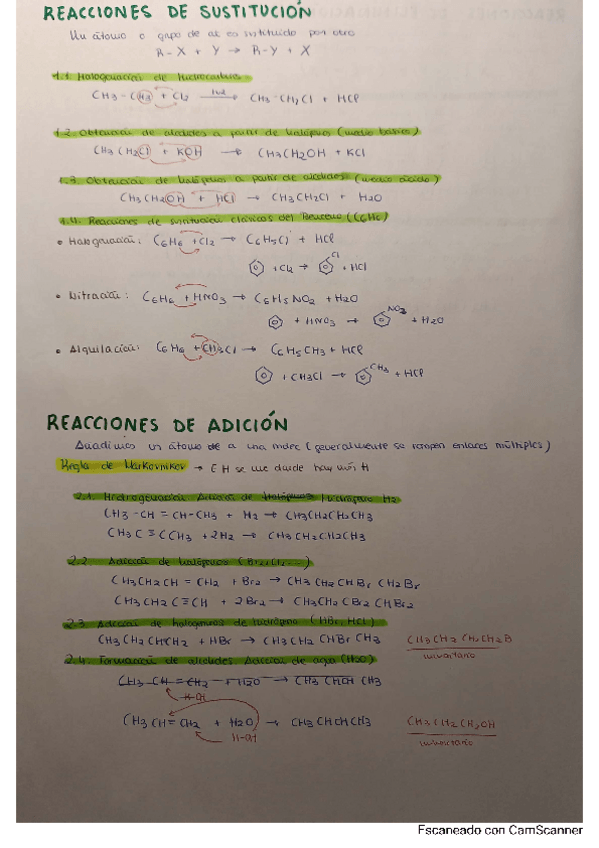 REACCIONES DE SUSTITUCIÓN
Un átomo o grupo de at es sustituido por otro
R-X + Y → R-Y + X
1.1. Halogenación de Hidrocarburos
CH3-CH3 + Cl2 → CH3-CH2Cl + HCl
1.2. Obtención de alcoholes a partir de halógenos (medio básico)
CH3CH2Cl + KOH → CH3CH2OH + KCl
1.3. Obtención de halógenos a partir de alcoholes (medio ácido)
CH3CH2OH + HCl → CH3CH2Cl + H2O
1.4. Reacciones de sustitución clásicas del Benceno (C6H6)
• Halogenación: C6H6 + Cl2 → C6H5Cl + HCl
+ Cl2 → Cl + HCl
• Nitración: C6H6 + HNO3 → C6H5NO2 + H2O
+ HNO3 → NO2 + H2O
• Alquilación: C6H6 + CH3Cl → C6H5CH3 + HCl
+ CH3Cl → CH3 + HCl
REACCIONES DE ADICIÓN
Añadimos un átomo de a una molec (generalmente se rompen enlaces múltiples)
Regla de Markovnikov → El H se une donde hay más H
2.1. Hidrogenación Adición de halógenos hidrógeno H2
CH3-CH=CH-CH3 + H2 → CH3CH2CH2CH3
CH3C≡CCH3 + 2H2 → CH3CH2CH2CH3
2.2. Adición de halógenos (Br2, Cl2...)
CH3CH2CH=CH2 + Br2 → CH3CH2CHBrCH2Br
CH3CH2C≡CH + 2Br2 → CH3CH2CBr2CHBr2
2.3. Adición de halogenuros de hidrógeno (HBr, HCl)
CH3CH2CHCH2 + HBr → CH3CH2CHBrCH3 CH3CH2CH2CH2B
minoritario
2.4. Formación de alcoholes Adición de agua (H2O)
CH3CH=CH2 + H2O → CH3CHOHCH3
H-OH
CH3CH=CH2 + H2O → CH3CHCHCH3 CH3CH2CH2OH
H-OH minoritario
Escaneado con CamScanner